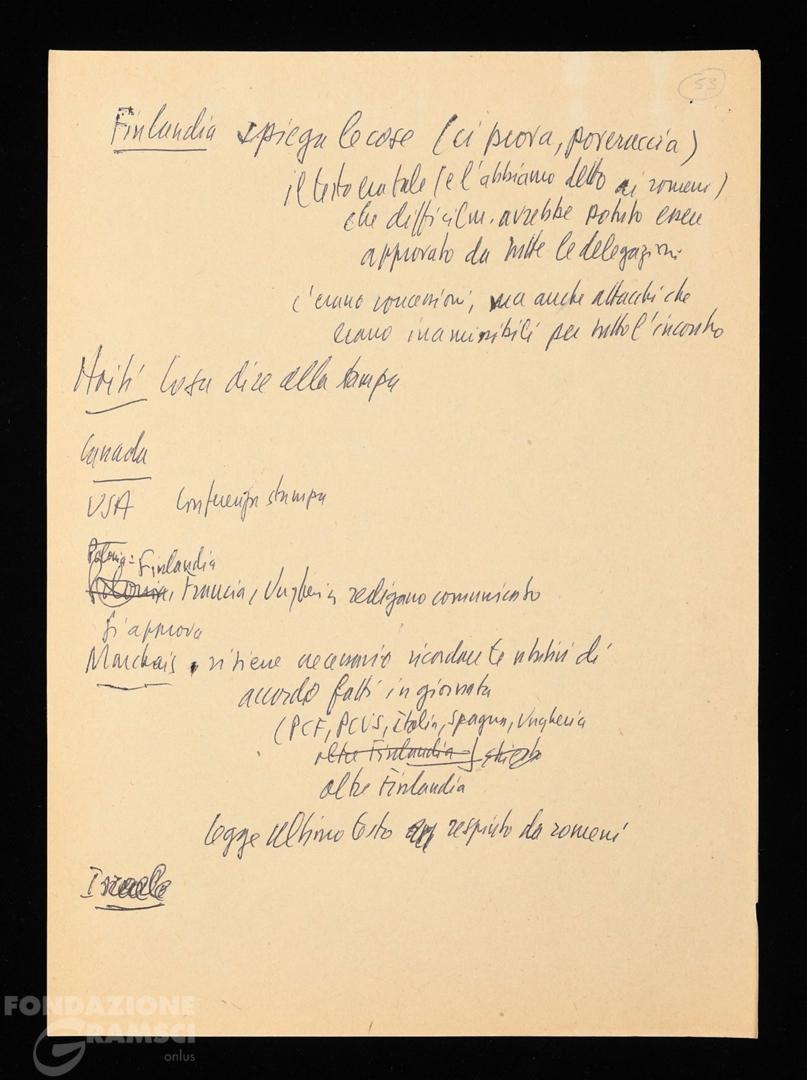 53
Finlandia spiega le cose (ci prova, poveraccia)
il testo era tale (e l'abbiamo detto ai romeni)
che difficilm. avrebbe potuto essere
approvato da tutte le delegazioni
c'erano concessioni, ma anche attacchi che
erano inamissibili per tutto l'incontro
Haiti Cosa dire alla stampa
Canada
USA Conferenza stampa
Polonia = Finlandia
Polonia, Francia, Ungheria redigano comunicato
Si approva
Marchais ritiene necessario ricordare tentativi di
accordo fatti in giornata
(PCF, PCUS, Italia, Spagna, Ungheria
oltre Finlandia)
oltre Finlandia
legge ultimo testo respinto da romeni
Israele
FONDAZIONE
GRAMSCI
onlus